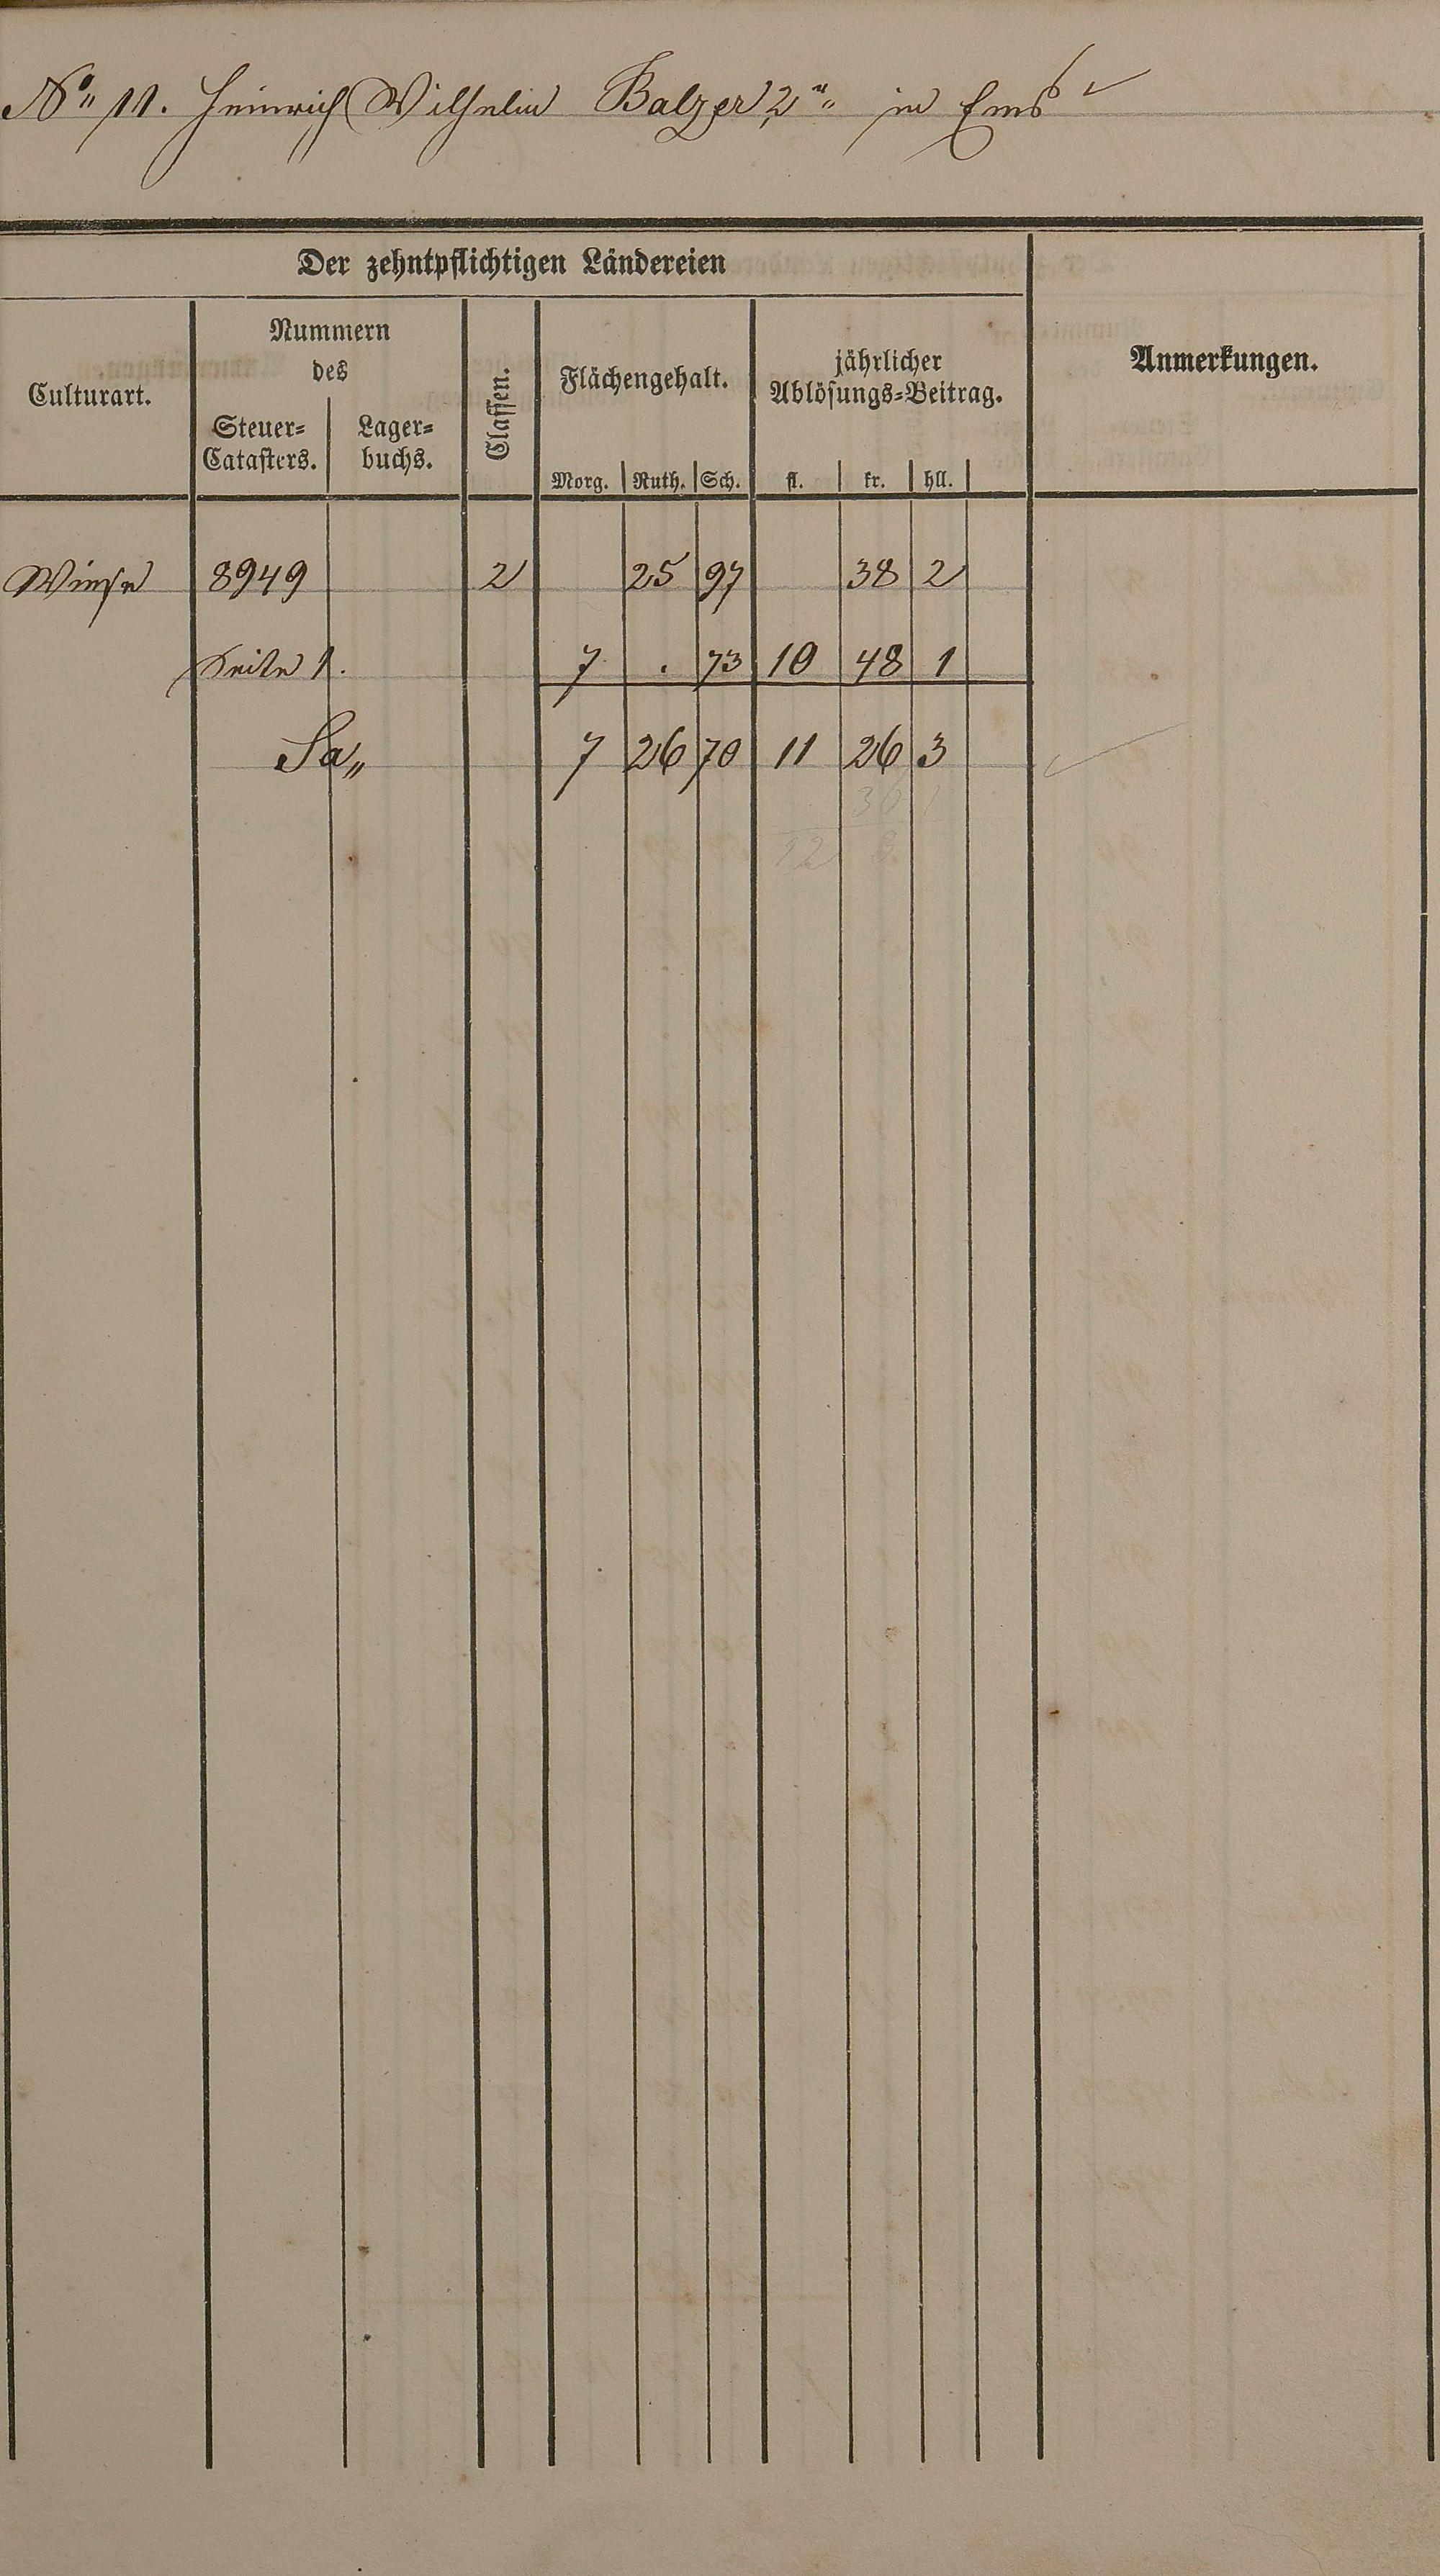 No 11. Heinrich Wilhelm Balzer 2r in Ems
Der zehntpflichtigen Ländereien
Culturart.
Nummern
des
Steuer=
Catasters.
Lager=
buchs.
Classen.
Flächengehalt.
Morg. Ruth. Sch.
jährlicher
Ablösungs=Beitrag.
fl. kr. hll.
Anmerkungen.
Wiese 8949 2 25 97 38 2
Seite 1. 7 . 73 10 48 1
Sa 7 26 70 11 26 3
12